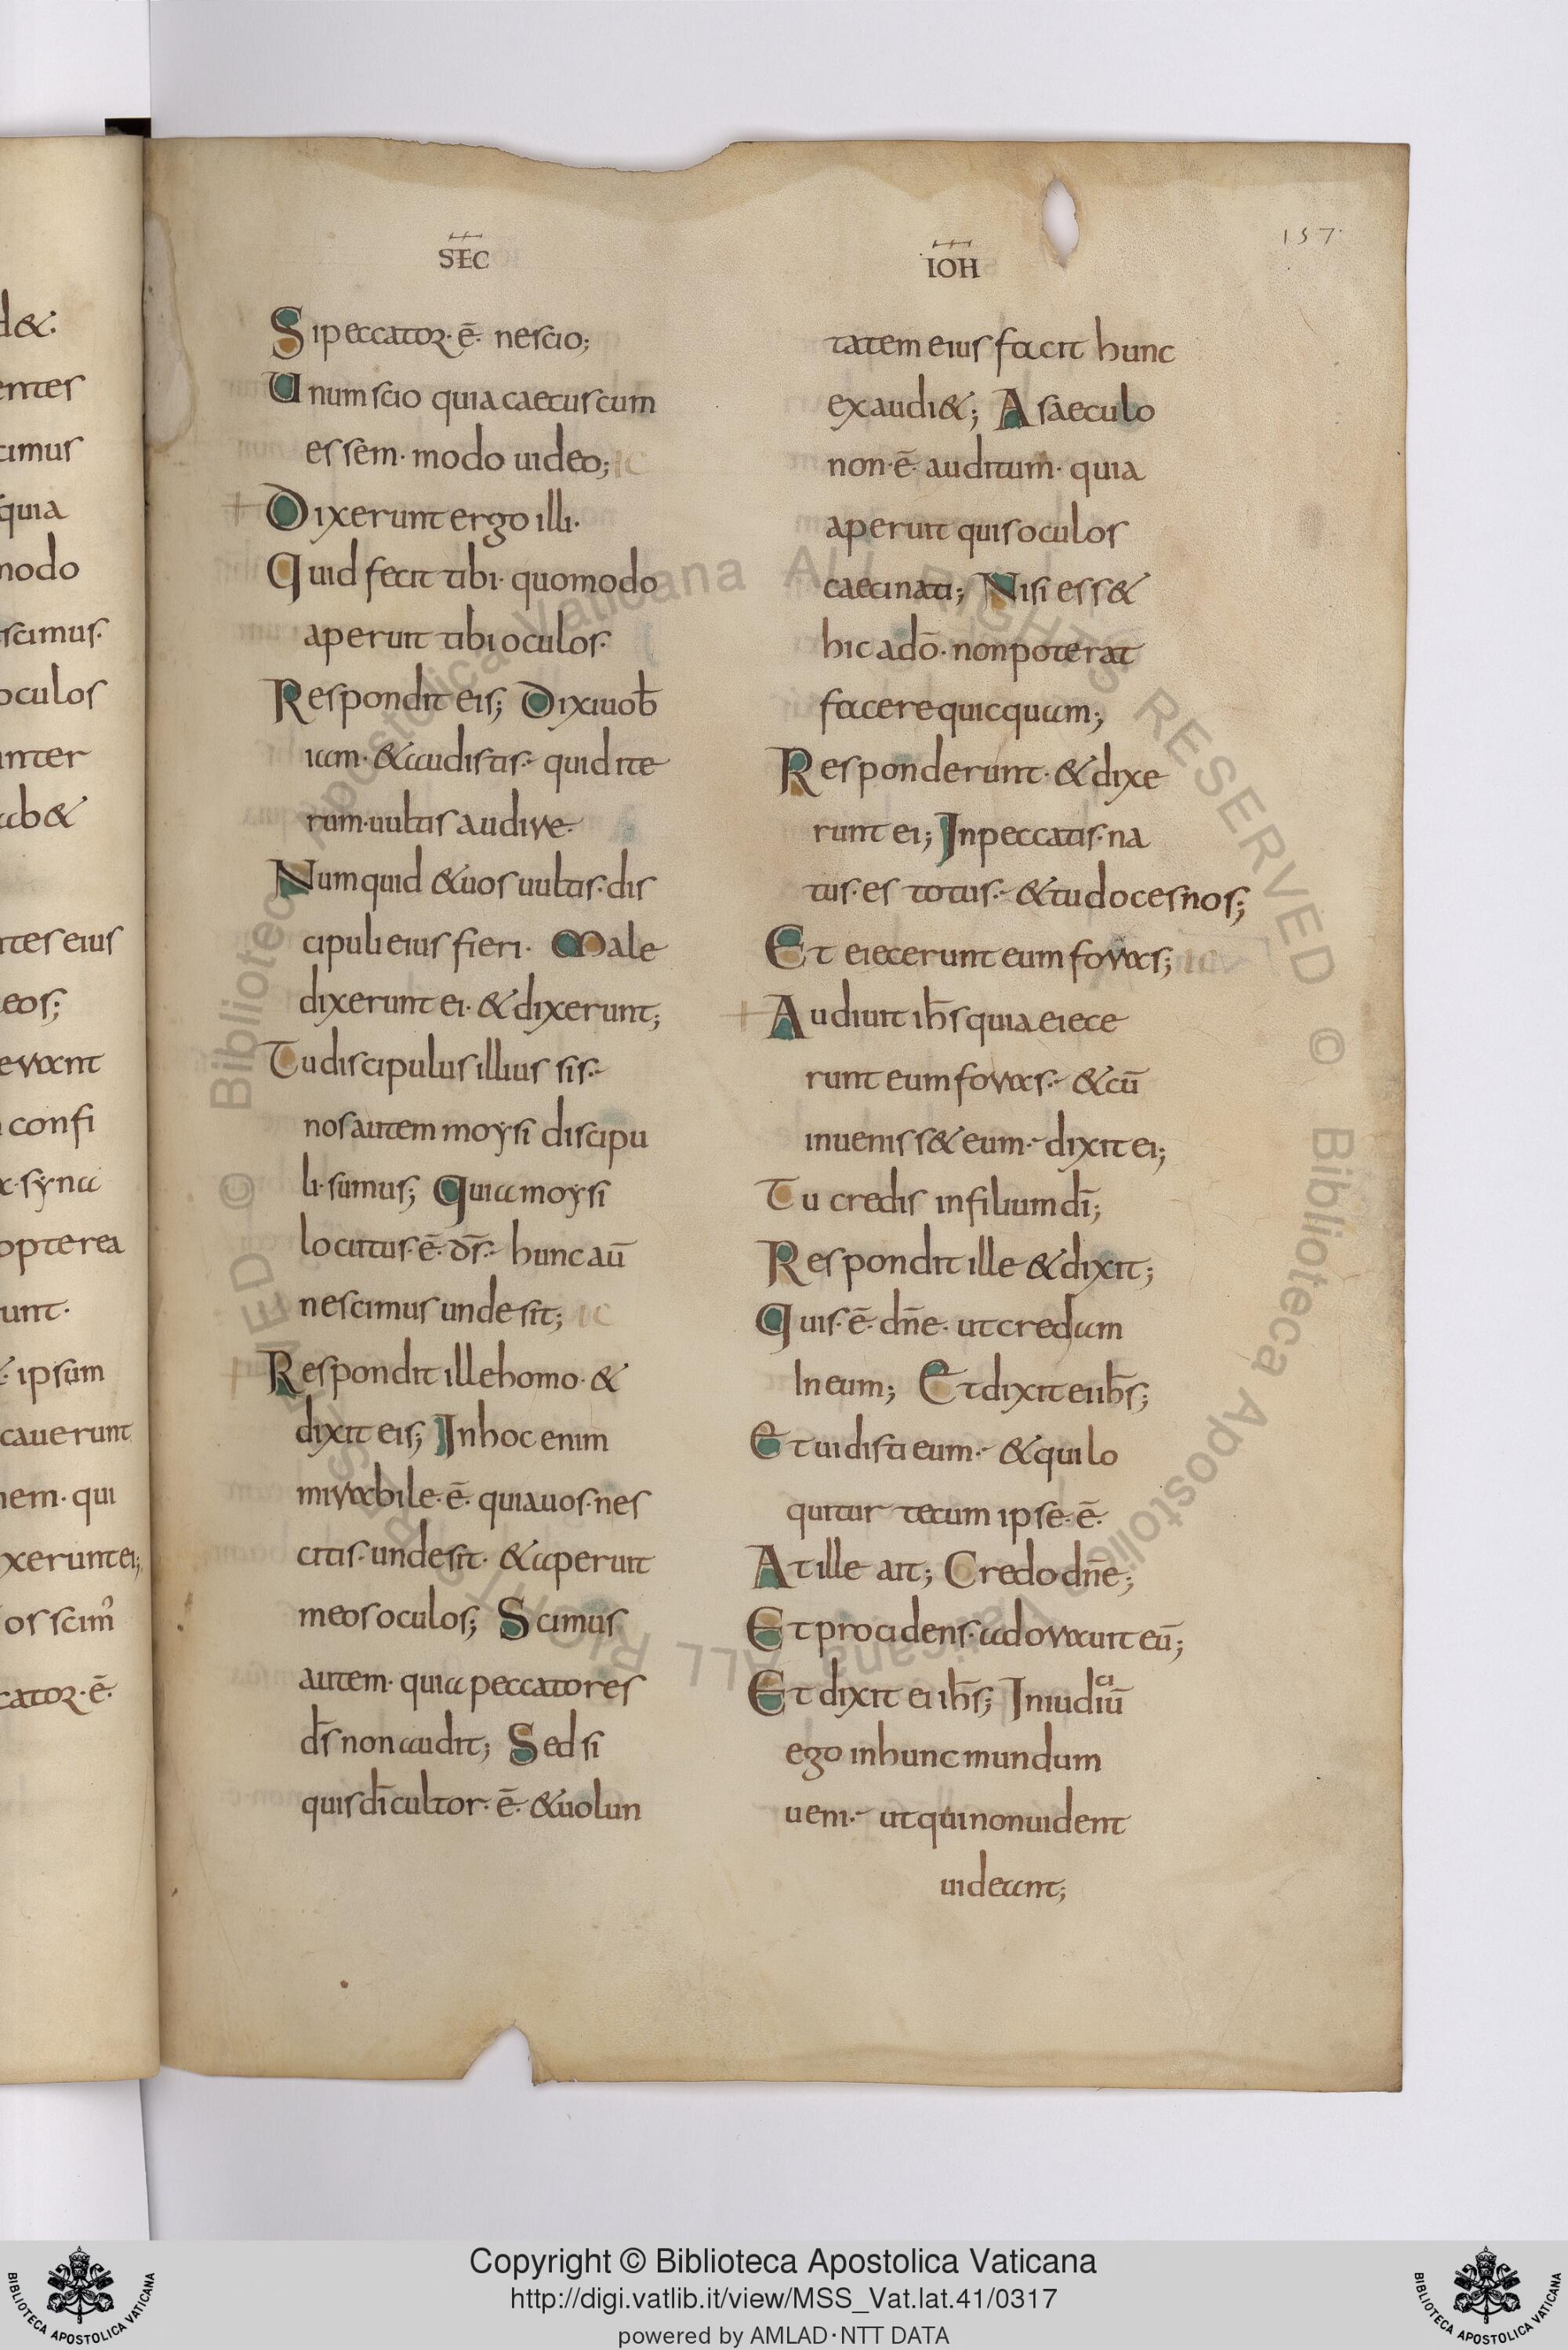 SEC
IOH
157
Si peccator· ē· nescio;
Unum scio quia caecus cum
essem· modo uideo;
+ Dixerunt ergo illi·
Quid fecit tibi· quomodo
aperuit tibi oculos·
Respondit eis; Dixi uob̄
iam· & audistis· quid ite
rum· uultis audire·
Numquid & uos uultis· dis
cipuli eius fieri· Male
dixerunt ei· & dixerunt;
Tu discipulus illius sis·
nos autem moysi discipu
li· sumus; Quia moysi
locutus· ē· ds̄· hunc aū
nescimus unde sit;
+ Respondit ille homo· &
dixit eis; In hoc enim
mirabile· ē· quia uos· nes
citis· unde sit· & aperuit
meos oculos; Scimus
autem· quia peccatores
ds̄ non audit; Sed si
quis dī cultor· ē· & uolun
tatem eius facit hunc
exaudi&; A saeculo
non· ē· auditum· quia
aperuit quis oculos
caeci nati; Nisi ess&
hic a dō· non poterat
facere quicquam;
Responderunt· & dixe
runt ei; In peccatis· na
tus· es totus· & tu doces nos;
Et eiecerunt eum foras;
+ Audiuit ih̄s quia eiece
runt eum foras· & cū
inueniss& eum· dixit ei;
Tu credis in filium dī;
Respondit ille & dixit;
Quis· ē· dn̄e· ut credam
In eum; Et dixit ei ih̄s;
Et uidisti eum· & qui lo
quitur tecum ipse· ē·
At ille ait; Credo dn̄e;
Et procidens· adorauit eū;
Et dixit ei ih̄s; In iudiciū
ego in hunc mundum
ueni· ut qui non uident
uideant;
Copyright © Biblioteca Apostolica Vaticana
http://digi.vatlib.it/view/MSS_Vat.lat.41/0317
powered by AMLAD·NTT DATA